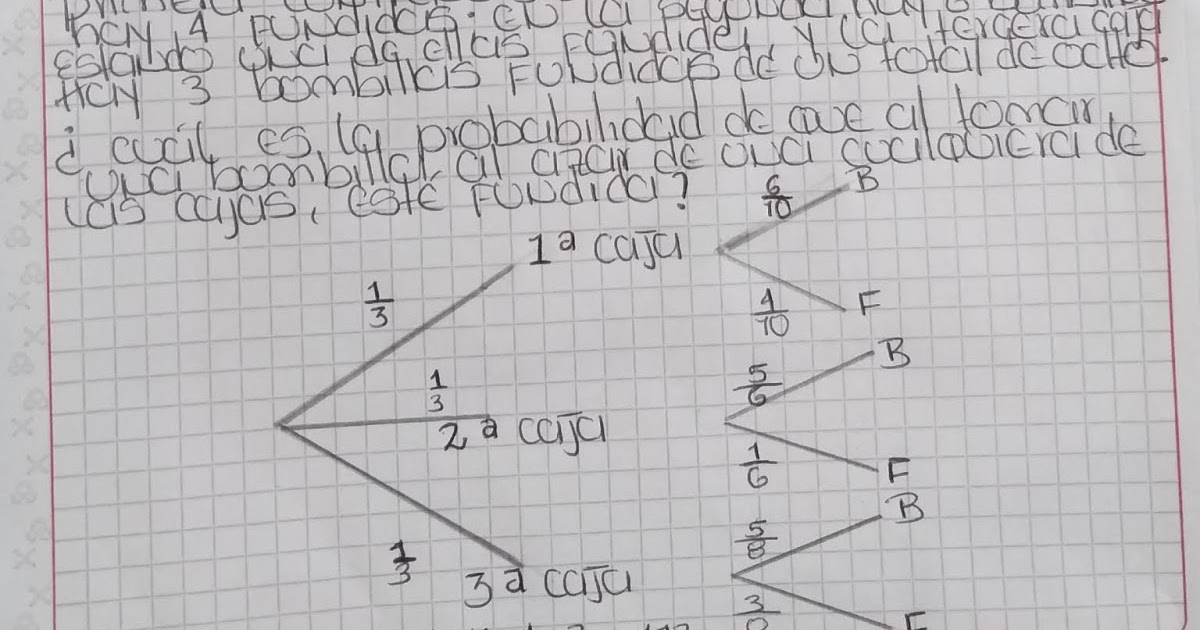 hay 4 fundidas. en la segunda hay 6
estando una de ellas fundida, y la tercera caja
Hay 3 bombillas fundidas de un total de ocho.
¿ cuál es la probabilidad de que al tomar
una bombilla al azar de una cualquiera de
las cajas, esté fundida?
6/10 B
1ª caja
1/3
4/10 F
B
1/3 5/6
2ª caja
1/6 F
B
5/8
1/3 3ª caja
3/8 F